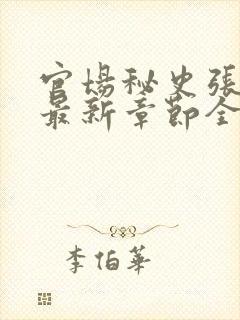 官场秘史張
最新章節全
李伯華